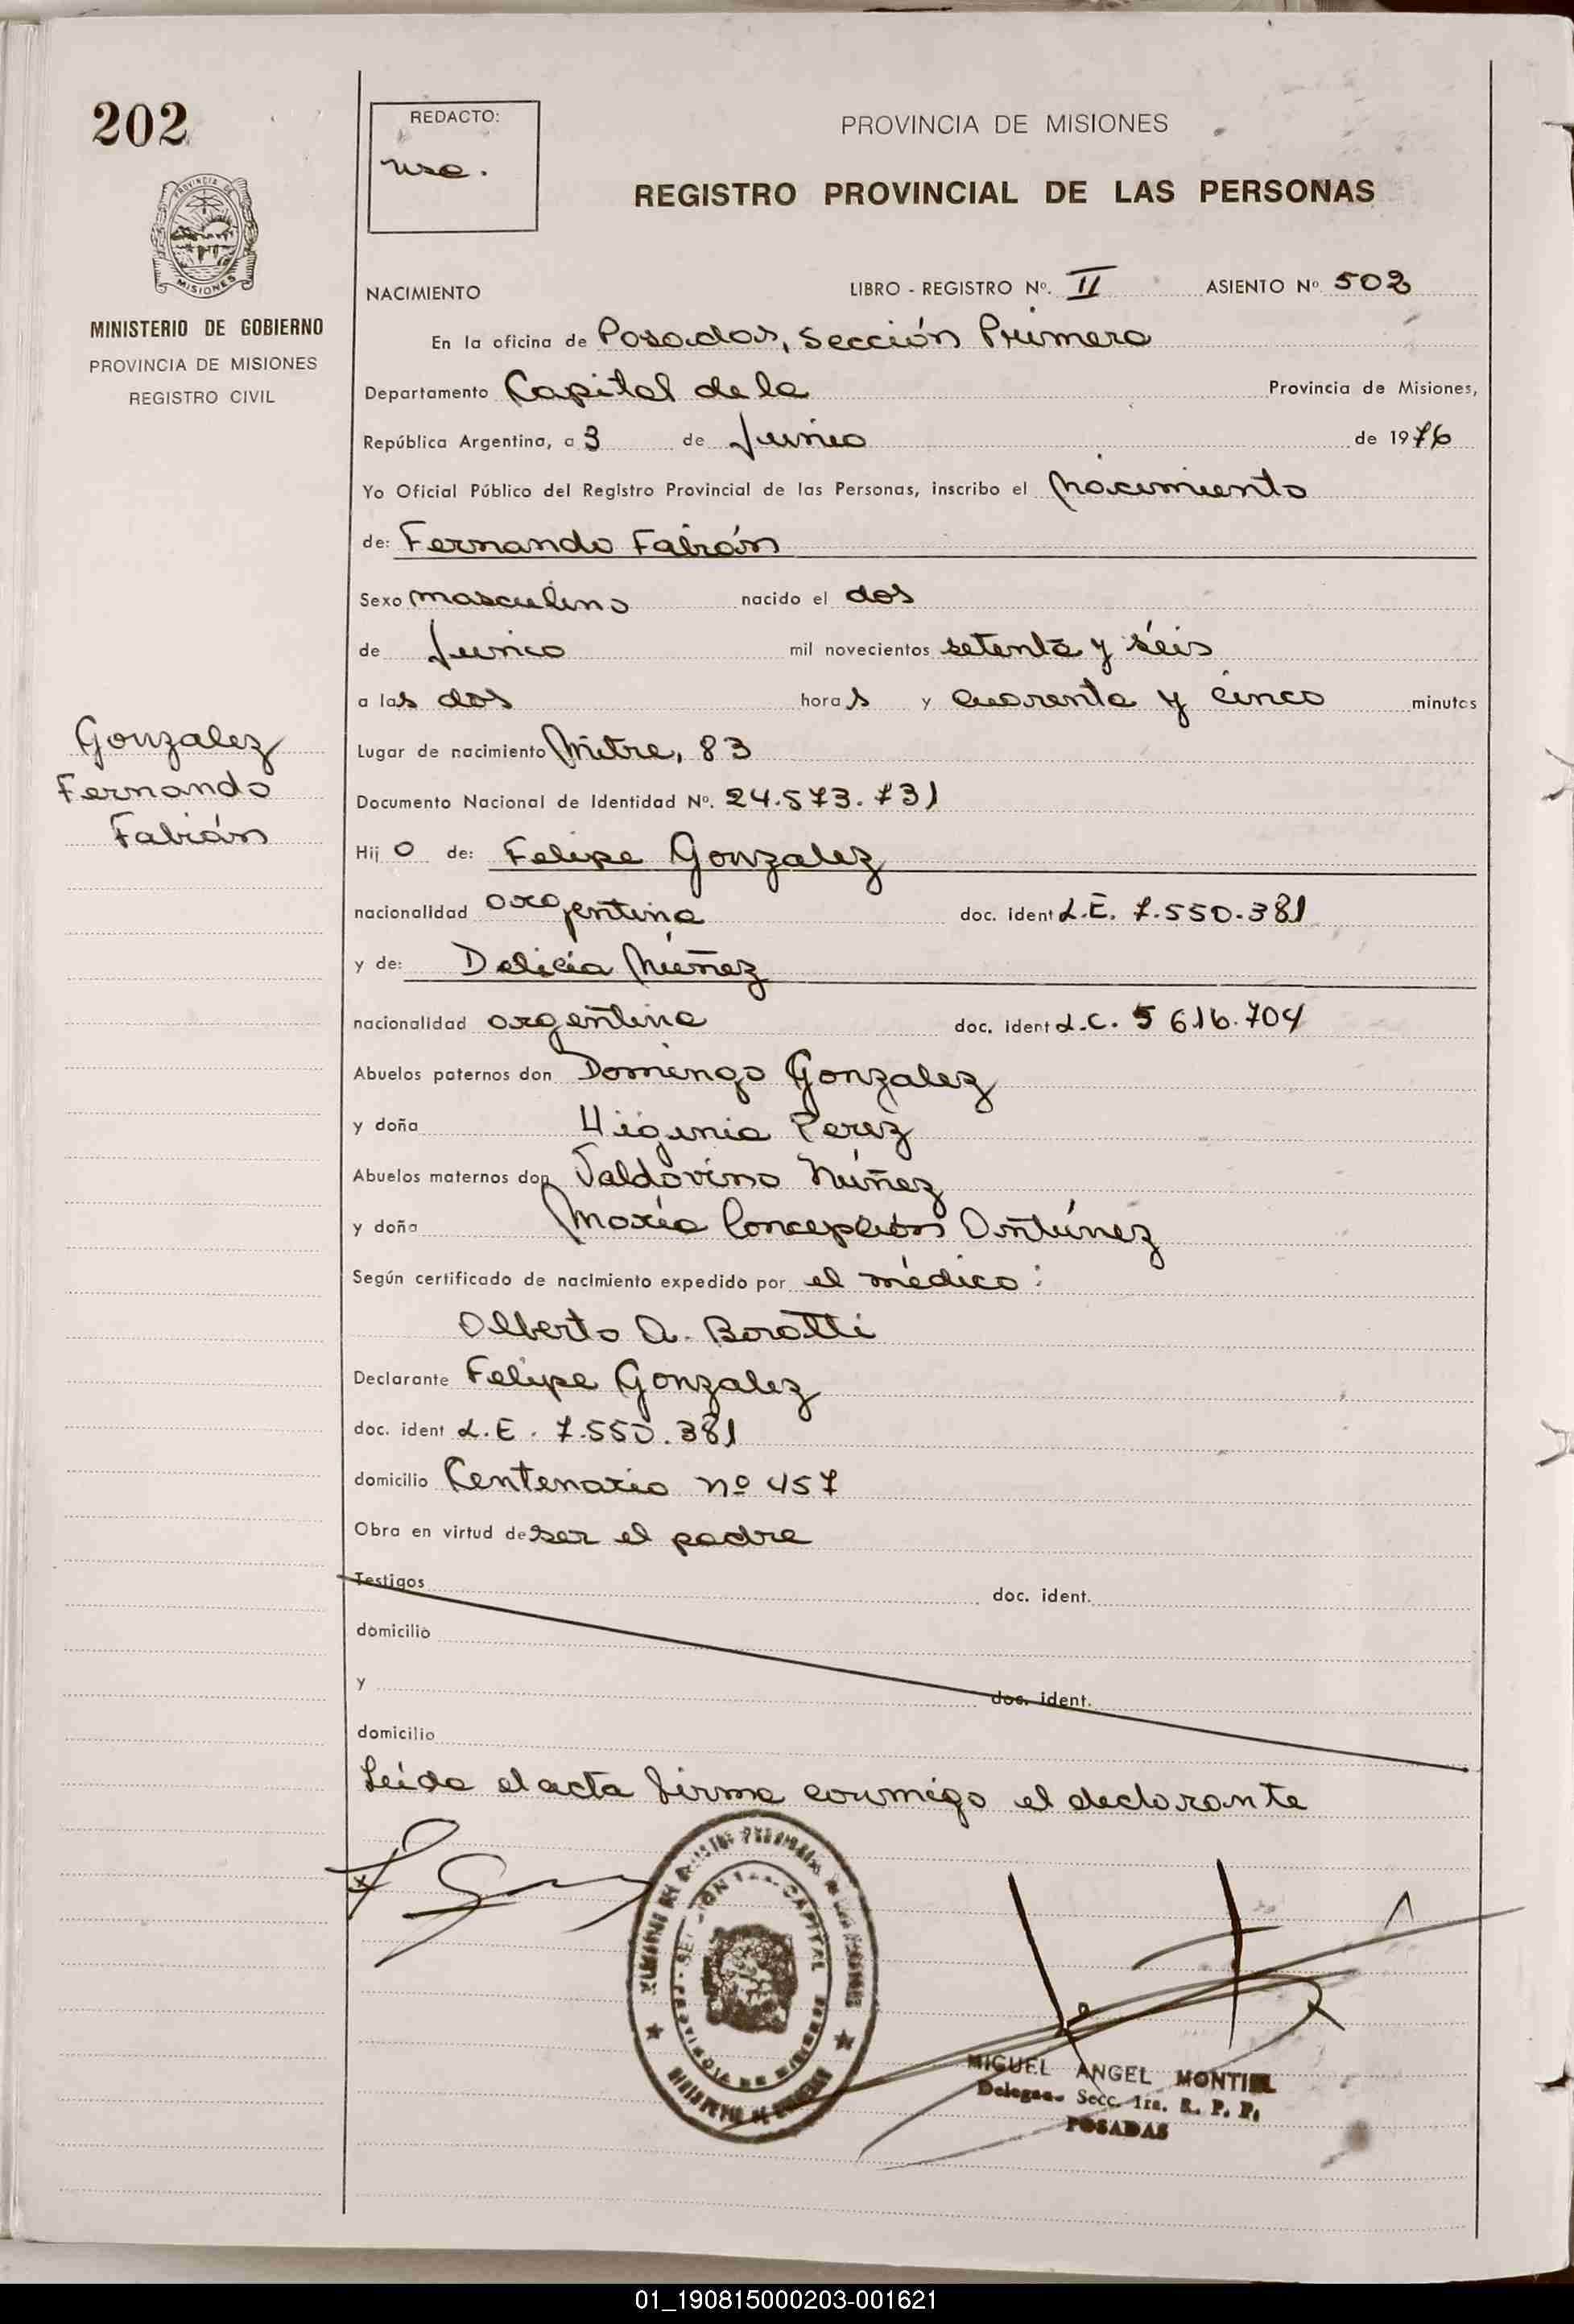 202
REDACTO:
PROVINCIA DE MISIONES
REGISTRO PROVINCIAL DE LAS PERSONAS
PROVINCIA DE
MISIONES
MINISTERIO DE GOBIERNO
PROVINCIA DE MISIONES
REGISTRO CIVIL
NACIMIENTO LIBRO - REGISTRO Nº. II ASIENTO Nº. 502
En la oficina de Posadas, Sección Primera
Departamento Capital de la Provincia de Misiones,
República Argentina, a 3 de Junio de 1976
Yo Oficial Público del Registro Provincial de las Personas, inscribo el Nacimiento
de: Fernando Fabián
Sexo masculino nacido el dos
de Junio mil novecientos setenta y seis
a las dos horas y cuarenta y cinco minutos
Lugar de nacimiento Mitre, 83
Gonzalez
Fernando
Fabián
Documento Nacional de Identidad Nº. 24.573.731
Hijo de: Felipe Gonzalez
nacionalidad argentina doc. ident L.E. 7.550.381
y de: Delicia Núñez
nacionalidad argentina doc. ident L.C. 5 616.704
Abuelos paternos don Domingo Gonzalez
y doña Higinia Perez
Abuelos maternos don Valdovino Núñez
y doña María Concepción Antúnez
Según certificado de nacimiento expedido por el médico:
Alberto A. Boratti
Declarante Felipe Gonzalez
doc. ident L.E. 7.550.381
domicilio Centenario nº 457
Obra en virtud de ser el padre
Testigos doc. ident.
domicilio
y doc. ident.
domicilio
Leída el acta firma conmigo el declarante
MIGUEL ANGEL MONTIEL
Secc. 1ra. R. P. P.
POSADAS
01_190815000203-001621